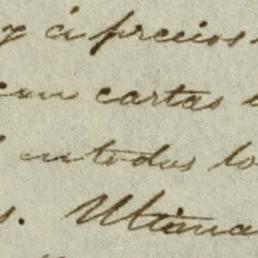 y á precios
con cartas
en todos lo
s. Ultima